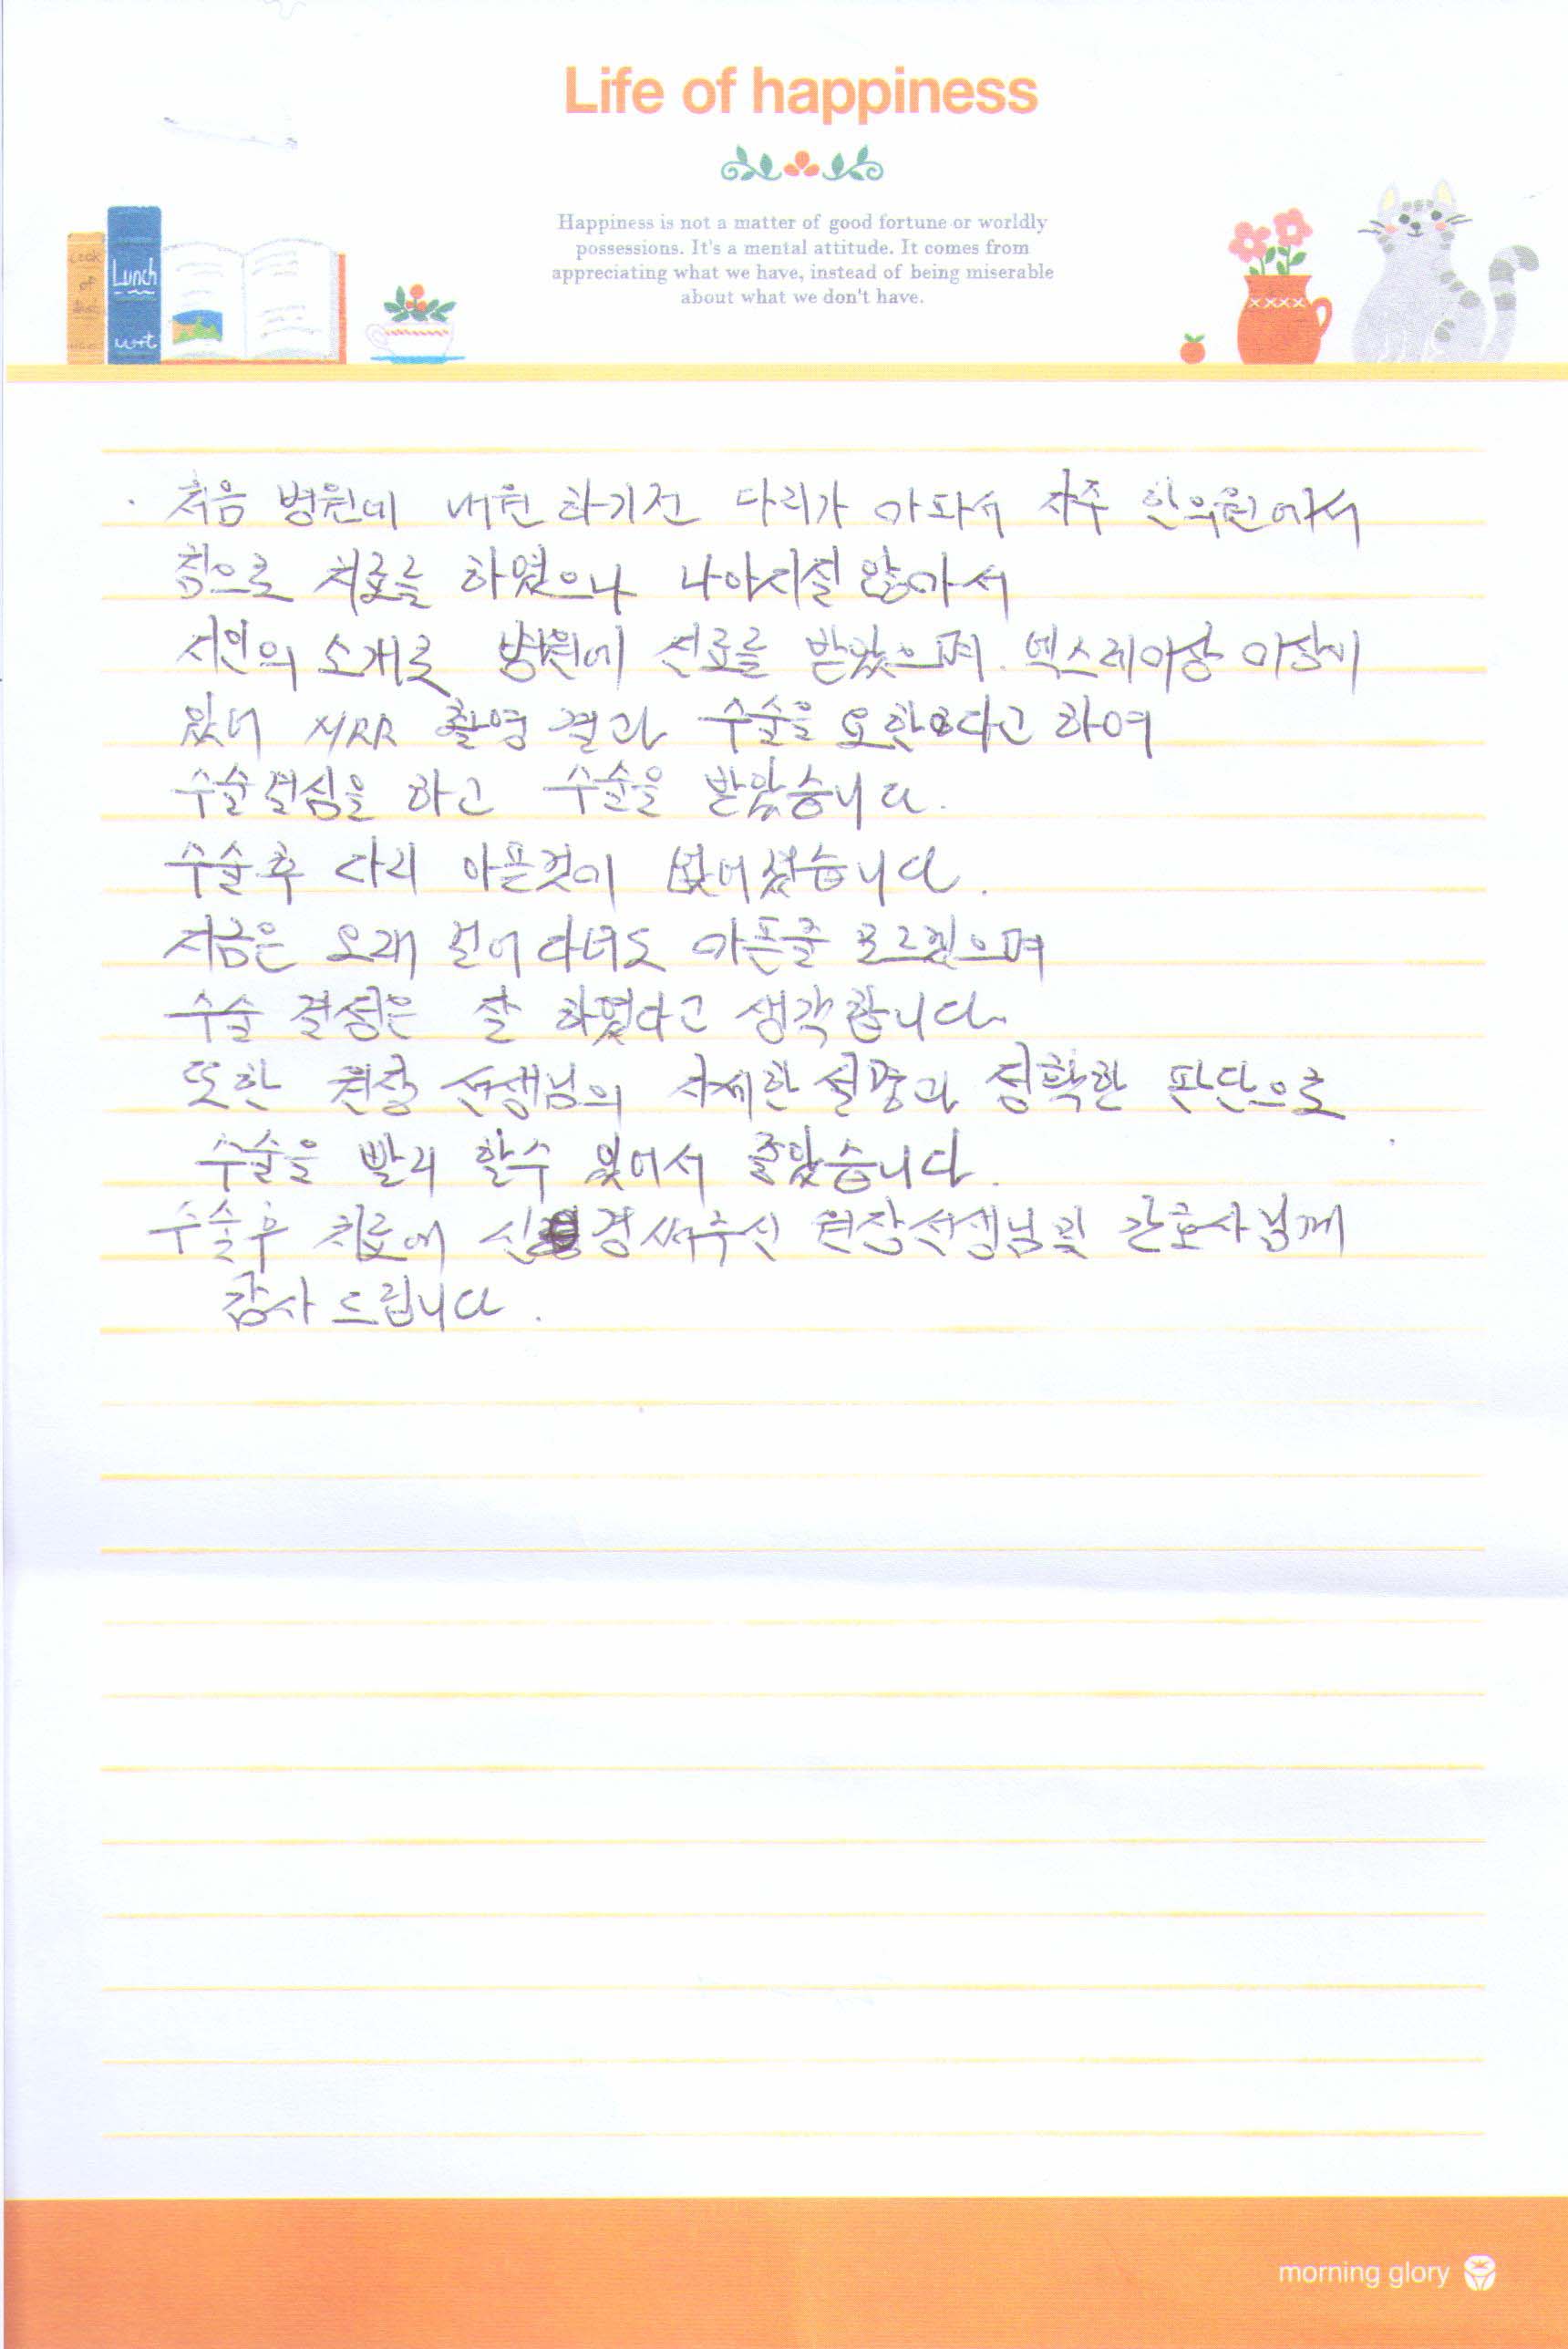 Life of happiness
Happiness is not a matter of good fortune or worldly
possessions. It's a mental attitude. It comes from
appreciating what we have, instead of being miserable
about what we don't have.
Lunch
. 처음 병원에 내원 하기전 다리가 아파서 자주 한의원에서
침으로 치료를 하였으나 나아지질 않아서
지인의 소개로 병원에 진료를 받았으며. 엑스레이상 이상이
있어 MRA 촬영 결과 수술을 요한다고 하여
수술결심을 하고 수술을 받았습니다.
수술후 다리 아픈것이 없어졌습니다.
지금은 오래 걸어 다녀도 아픈줄 모르겠으며
수술 결정은 잘 하였다고 생각합니다.
또한 원장 선생님의 자세한 설명과 정확한 판단으로
수술을 빨리 할수 있어서 좋았습니다.
수술후 치료에 신경써주신 원장선생님및 간호사님께
감사 드립니다.
morning glory